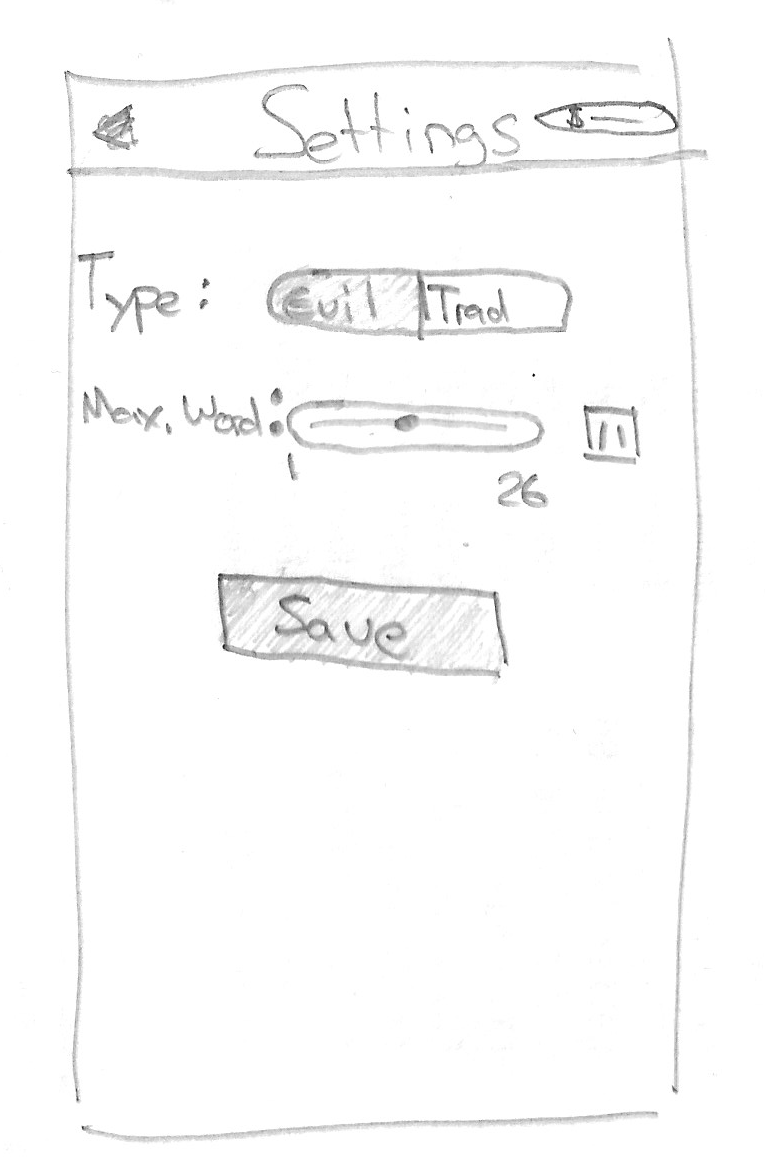 Settings $
Type: Evil Trad
Max. Word: 11
1 26
Save